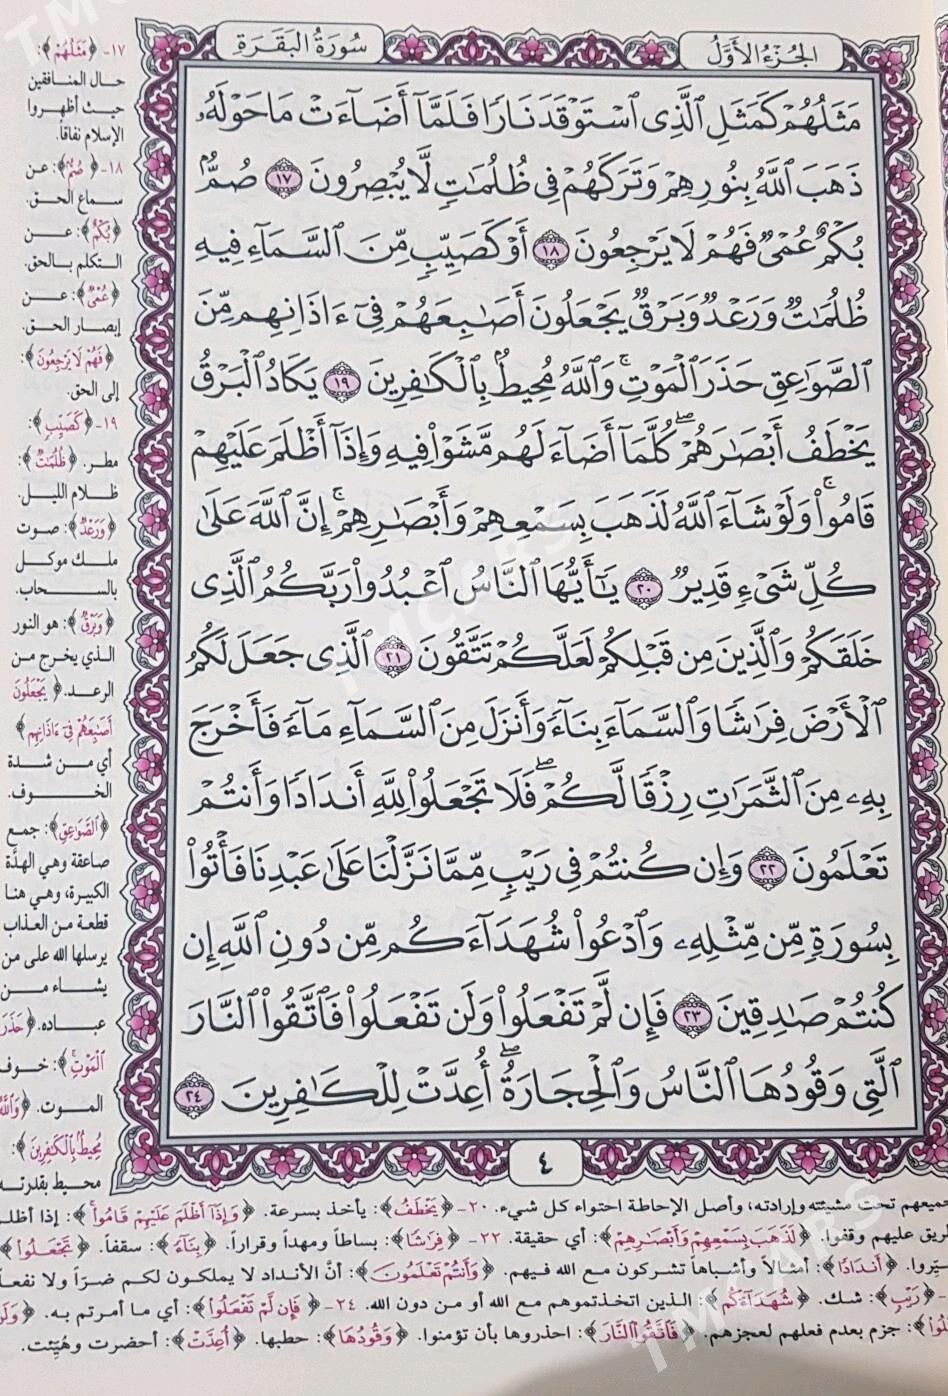 الجُزْءُ الأَوَّلُ
سُورَةُ البَقَرَةِ
مَثَلُهُمْ كَمَثَلِ ٱلَّذِى ٱسْتَوْقَدَ نَارًا فَلَمَّآ أَضَآءَتْ مَا حَوْلَهُۥ
ذَهَبَ ٱللَّهُ بِنُورِهِمْ وَتَرَكَهُمْ فِى ظُلُمَٰتٍ لَّا يُبْصِرُونَ ١٧ صُمٌّۢ
بُكْمٌ عُمْىٌ فَهُمْ لَا يَرْجِعُونَ ١٨ أَوْ كَصَيِّبٍ مِّنَ ٱلسَّمَآءِ فِيهِ
ظُلُمَٰتٌ وَرَعْدٌ وَبَرْقٌ يَجْعَلُونَ أَصَٰبِعَهُمْ فِىٓ ءَاذَانِهِم مِّنَ
ٱلصَّوَٰعِقِ حَذَرَ ٱلْمَوْتِ ۚ وَٱللَّهُ مُحِيطٌۢ بِٱلْكَٰفِرِينَ ١٩ يَكَادُ ٱلْبَرْقُ
يَخْطَفُ أَبْصَٰرَهُمْ ۖ كُلَّمَآ أَضَآءَ لَهُم مَّشَوْا۟ فِيهِ وَإِذَآ أَظْلَمَ عَلَيْهِمْ
قَامُوا۟ ۚ وَلَوْ شَآءَ ٱللَّهُ لَذَهَبَ بِسَمْعِهِمْ وَأَبْصَٰرِهِمْ ۚ إِنَّ ٱللَّهَ عَلَىٰ
كُلِّ شَىْءٍ قَدِيرٌ ٢٠ يَٰٓأَيُّهَا ٱلنَّاسُ ٱعْبُدُوا۟ رَبَّكُمُ ٱلَّذِى
خَلَقَكُمْ وَٱلَّذِينَ مِن قَبْلِكُمْ لَعَلَّكُمْ تَتَّقُونَ ٢١ ٱلَّذِى جَعَلَ لَكُمُ
ٱلْأَرْضَ فِرَٰشًا وَٱلسَّمَآءَ بِنَآءً وَأَنزَلَ مِنَ ٱلسَّمَآءِ مَآءً فَأَخْرَجَ
بِهِۦ مِنَ ٱلثَّمَرَٰتِ رِزْقًا لَّكُمْ ۖ فَلَا تَجْعَلُوا۟ لِلَّهِ أَندَادًا وَأَنتُمْ
تَعْلَمُونَ ٢٢ وَإِن كُنتُمْ فِى رَيْبٍ مِّمَّا نَزَّلْنَا عَلَىٰ عَبْدِنَا فَأْتُوا۟
بِسُورَةٍ مِّن مِّثْلِهِۦ وَٱدْعُوا۟ شُهَدَآءَكُم مِّن دُونِ ٱللَّهِ إِن
كُنتُمْ صَٰدِقِينَ ٢٣ فَإِن لَّمْ تَفْعَلُوا۟ وَلَن تَفْعَلُوا۟ فَٱتَّقُوا۟ ٱلنَّارَ
ٱلَّتِى وَقُودُهَا ٱلنَّاسُ وَٱلْحِجَارَةُ ۖ أُعِدَّتْ لِلْكَٰفِرِينَ ٢٤
٤
١٧- ﴿مَثَلُهُمْ﴾:
حال المنافقين
حيث أظهروا
الإسلام نفاقاً.
١٨- ﴿صُمٌّ﴾: عن
سماع الحق.
﴿بُكْمٌ﴾: عن
التكلم بالحق.
﴿عُمْىٌ﴾: عن
إبصار الحق.
﴿فَهُمْ لَا يَرْجِعُونَ﴾:
إلى الحق.
١٩- ﴿كَصَيِّبٍ﴾:
مطر. ﴿ظُلُمَٰتٌ﴾:
ظلام الليل.
﴿وَرَعْدٌ﴾: صوت
ملك موكل
بالسحاب.
﴿وَبَرْقٌ﴾: هو النور
الذي يخرج من
الرعد. ﴿يَجْعَلُونَ
أَصَٰبِعَهُمْ فِىٓ ءَاذَانِهِم﴾
أي من شدة
الخوف.
﴿ٱلصَّوَٰعِقِ﴾: جمع
صاعقة وهي الهدَّة
الكبيرة، وهي هنا
قطعة من العذاب
يرسلها الله على من
يشاء من
عباده. ﴿حَذَرَ
ٱلْمَوْتِ﴾: خوف
الموت. ﴿وَٱللَّهُ
مُحِيطٌۢ بِٱلْكَٰفِرِينَ﴾:
محيط بقدرته
جميعهم تحت مشيئته وإرادته، وأصل الإحاطة احتواء كل شيء. ٢٠- ﴿يَخْطَفُ﴾: يأخذ بسرعة. ﴿وَإِذَآ أَظْلَمَ عَلَيْهِمْ قَامُوا۟﴾: إذا أظلم
الطريق عليهم وقفوا. ﴿لَذَهَبَ بِسَمْعِهِمْ وَأَبْصَٰرِهِمْ﴾: أي حقيقة. ٢٢- ﴿فِرَٰشًا﴾: بساطاً ومهداً وقراراً. ﴿بِنَآءً﴾: سقفاً. ﴿تَجْعَلُوا۟﴾
﴿أَندَادًا﴾: أمثالاً وأشباهاً تشركون مع الله فيهم. ﴿وَأَنتُمْ تَعْلَمُونَ﴾: أنَّ الأنداد لا يملكون لكم ضرّاً ولا نفعاً
﴿رَيْبٍ﴾: شك. ﴿شُهَدَآءَكُم﴾: الذين اتخذتموهم مع الله أو من دون الله. ٢٤- ﴿فَإِن لَّمْ تَفْعَلُوا۟﴾: أي ما أمرتم به. ﴿وَلَن
تَفْعَلُوا۟﴾: جزم بعدم فعلهم لعجزهم. ﴿فَٱتَّقُوا۟ ٱلنَّارَ﴾: احذروها بأن تؤمنوا. ﴿وَقُودُهَا﴾: حطبها. ﴿أُعِدَّتْ﴾: أحضرت وهُيِّئت.
TMCARS
TMCARS